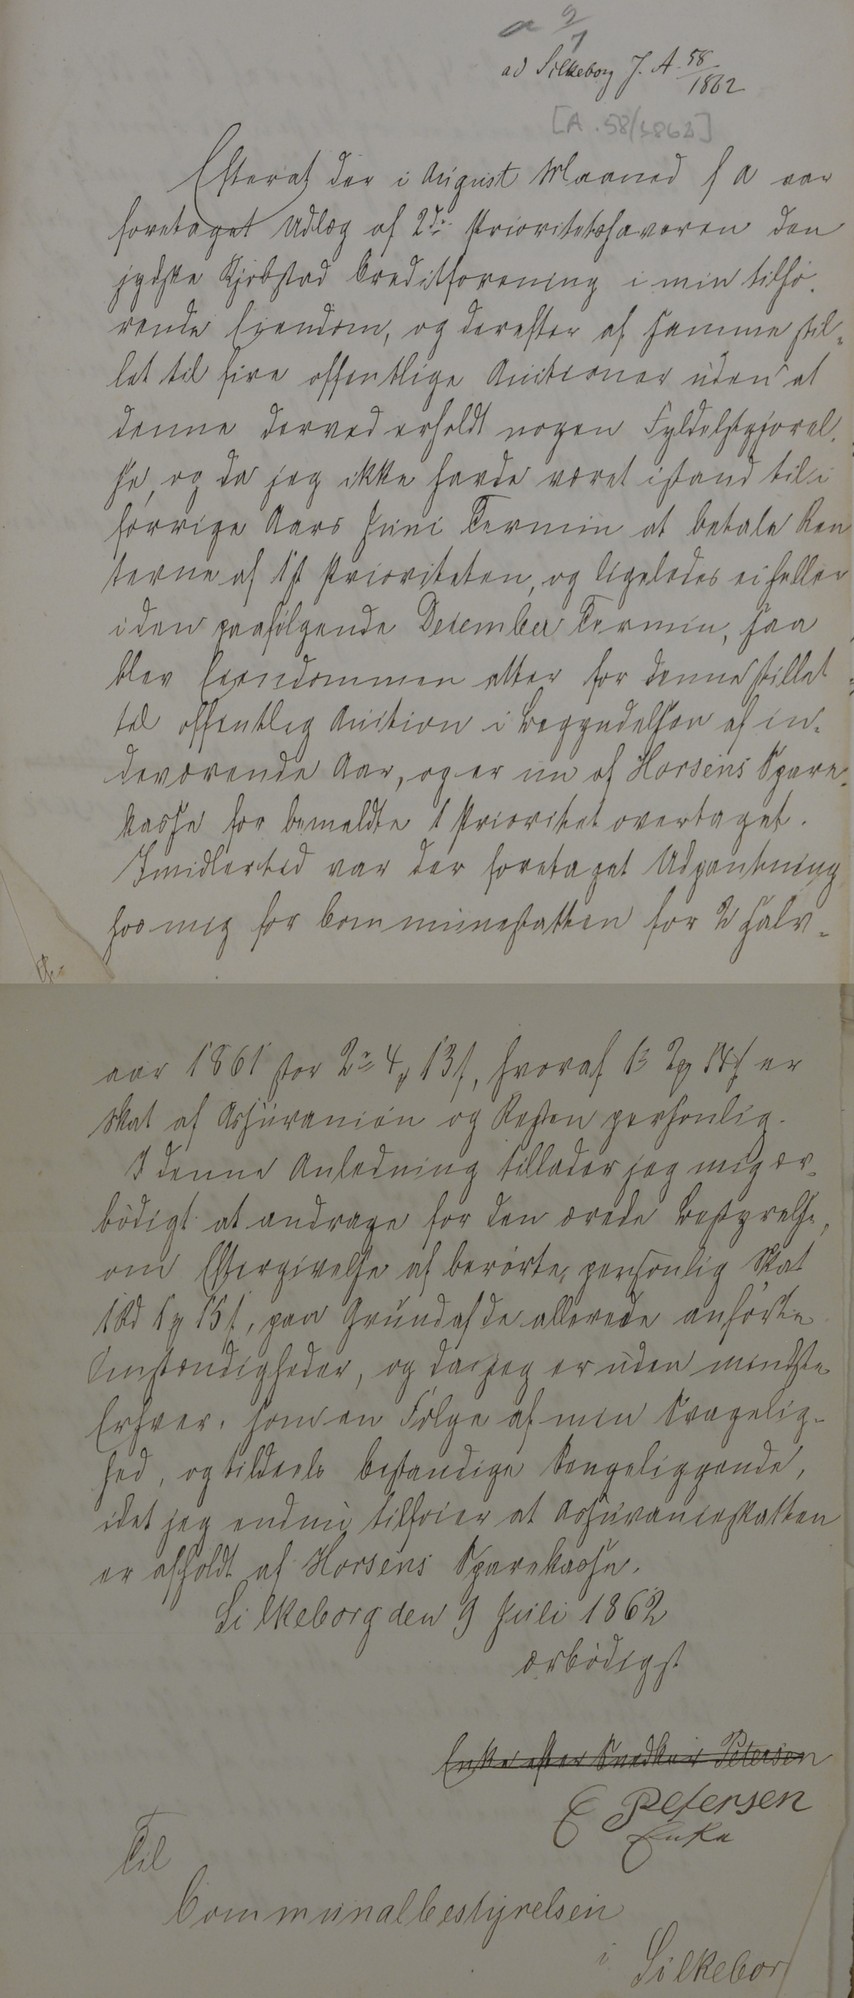 a 9/7
ad Silkeborg J. A. 58/1862
[A. 58/1862]
Efterat der i August Maaned f A var
foretaget Udlæg af 2den Prioritetshaveren den
jydske Kjøbstad Creditforening i min tilhø-
rende Eiendom, og derefter af samme stil-
let til fire offentlige Auctioner uden at
denne derved erholdt nogen Fyldestgjørel-
se, og da jeg ikke havde været istand til i
forrige Aars Juni Termin at betale Ren
terne af 1st Prioriteten, og ligeledes ei heller
i den paafølgende December Termin, saa
blev Eiendommen atter for denne stillet
til offentlig Auction i Begyndelsen af in-
deværende Aar, og er nu af Horsens Spare-
kasse for bemeldte 1 Prioritet overtaget.
Imidlertid var der foretaget Udpantning
hos mig for Communeskatten for 2 Halv-
aar 1861 stor 2rd 4 13 s, hvoraf 1 2 14 s er
Skat af Assurancen og Resten personlig.
I denne Anledning tillader jeg mig ær-
bødigt at andrage for den ærede Bestyrelse,
om Eftergivelse af berørte, personlig Skat
1 Rd 1 15 s, paa Grund af de allerede anførte
Omstændigheder, og da jeg er uden mindste
Erhver. som en Følge af min Svagelig-
hed, og tildeels bestandige Sengeliggende,
idet jeg endnu tilføier at Assuranceskatten
er afholdt af Horsens Sparekasse.
Silkeborg den 9 Juli 1862
ærbødigst
Enke efter Snedker Petersen
E Petersen
Enke
Til
Communalbestyrelsen
i Silkebor